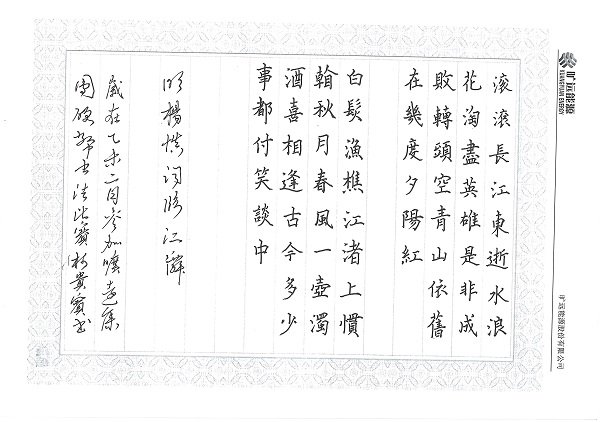 旷远能源
KUANGYUAN ENERGY
旷远能源股份有限公司
滾滾長江東逝水浪
花淘盡英雄是非成
敗轉頭空青山依舊
在幾度夕陽紅
白髮漁樵江渚上慣
秋月春風一壺濁
酒喜相逢古今多少
事都付笑談中
明楊慎詞臨江
歲在乙未二月參加曠遠集
團硬筆書法比賽 貴賓書